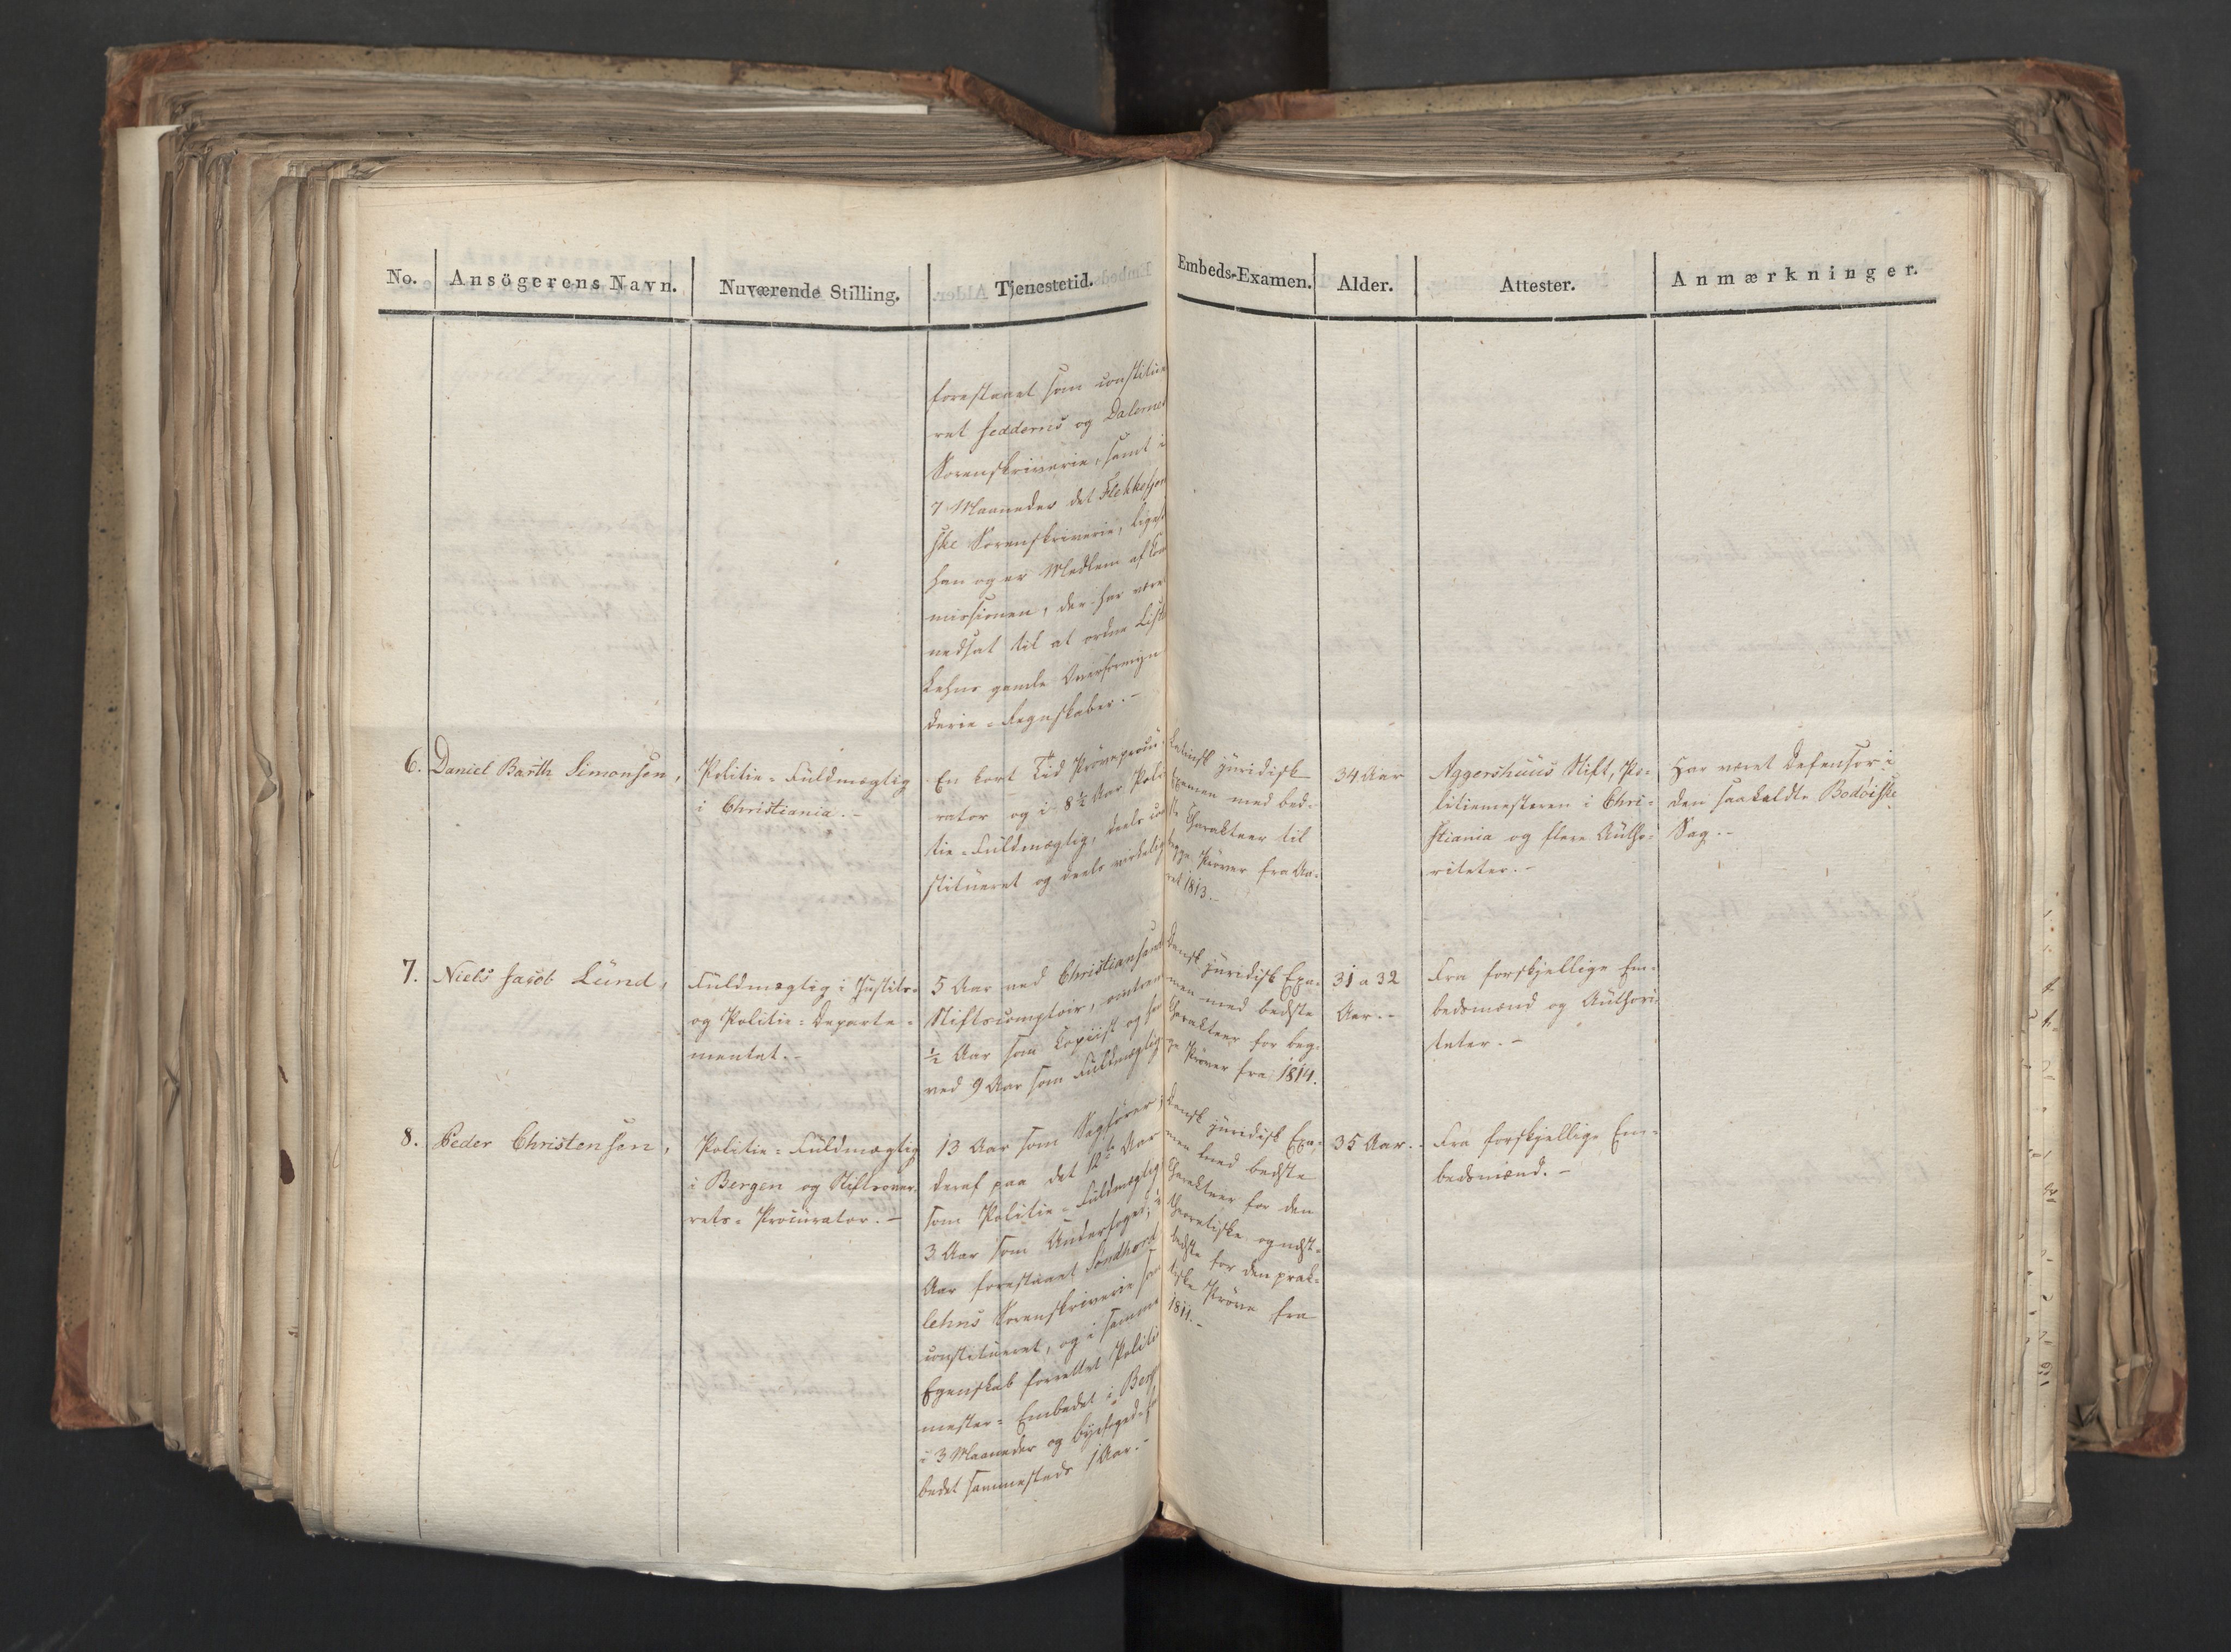 No. Ansögerens Navn. Nuværende Stilling. Tjenestetid. Embeds-Examen. Alder. Attester. Anmærkninger.
forestaaet som constitue
ret Jedderens og Dalernes
Sorenskriverie, samt i
7 Maaneder det Flekkefjord
ske Sorenskriverie, ligesom
han og er Medlem af Com
missionen, der har været
nedsat til at ordne Lister
Lehns gamle Overformyn
derie-Regnskaber.-
6. Daniel Barth Simonsen,
Politie-Fuldmægtig
i Christiania.-
En kort Tid Prøveprocu-
rator og i 8½ Aar Poli
tie-Fuldmægtig, deels con
stitueret og deels virkelig
Latinsk juridisk
Examen med bed-
ste Charakteer til
begge Prøver fra Aa-
ret 1813.-
34 Aar
Aggershuus Stift, Po-
litiemesteren i Chri-
stiania og flere Autho-
riteter.-
Har været Defensor i
den saakaldte Bodöiske
Sag.-
7. Niels Jacob Lund,
Fuldmægtig i Justits-
og Politie-Departe-
mentet.-
5 Aar ved Christiansands
Stiftscomptoir, omtrent
½ Aar som Copiist og her
ved 9 Aar som Fuldmægtig
Dansk juridisk Exa-
men med bedste
Charakteer for beg-
ge Prøver fra 1814.
31 a 32
Aar.-
Fra forskjellige Em-
bedsmænd og Authori-
teter.-
8. Peder Christensen,
Politie-Fuldmægtig
i Bergen og Stiftsover-
rets-Procurator.-
13 Aar som Sagfører,
deraf paa det 12te Aar
som Politie-Fuldmægtig
3 Aar som Underfoged, i
Aar forestaaet Söndhord
lehns Sorenskriverie som
constitueret, og i samme
Egenskab forrettet Politi
mester-Embedet i Bergen
i 3 Maaneder og Byefoged-
bedet sammesteds 1 Aar.-
Dansk juridisk Exa-
men med bedste
Charakteer for den
theoretiske og næst-
bedste for den prak-
tiske Prøve fra
1811.-
35 Aar.
Fra forskjellige Em-
bedsmænd.-